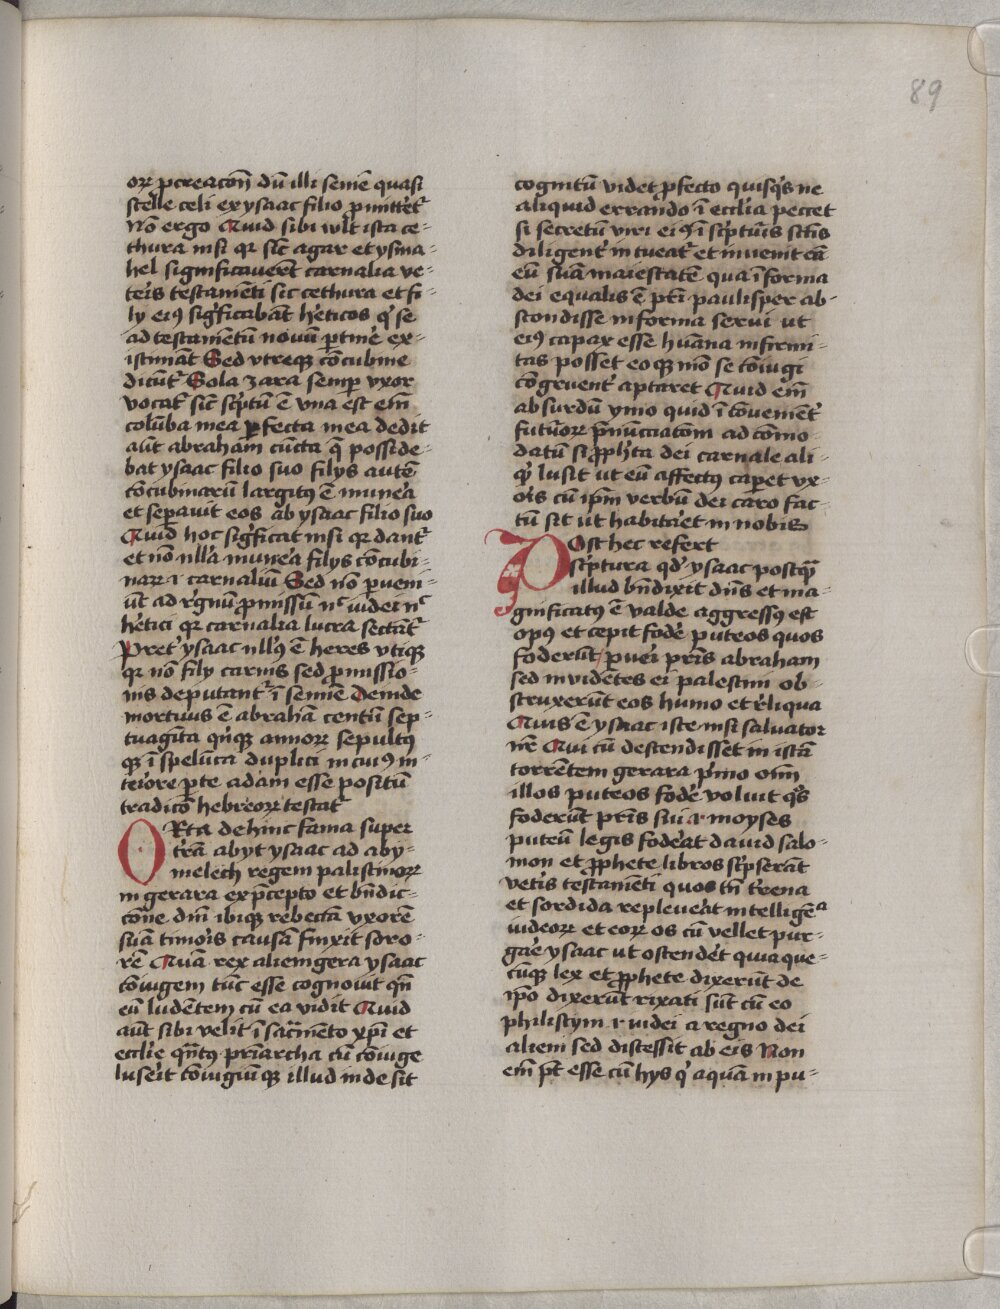 89
orꝝ ꝓcreacōn̄ dū illi semē quasi
stelle celi ex ysaac filio ꝓmittēt᷑
Nō ergo Quid sibi vlt̄ ista ce⸗
thura nisi qꝛ sic̄ agar et ysma⸗
hel significauer̄t carnalia ve⸗
teris testamēti sic cethura et fi⸗
ly eiꝰ sig̾ficabāt hēticos q̾ se
ad testamentū nouū ꝑtinē ex⸗
istimāt Sed vtreqꝫ cōcubine
dicūt᷑ Sola zara semꝑ vxor
vocat᷑ sic̄ sc̾ptū ē vna est em̄
colūba mea ꝑfecta mea dedit
aūt abrahām cūcta q̄ posside⸗
bat ysaac filio suo filys autē
cōcubinarū largitꝰ ē mune̾a
et seꝑauit eos ab ysaac filio suo
Quid hoc sig̾ficat nisi qꝛ dant᷑
et nō nlla̾ mune̾a filys cōcubi⸗
narꝝ ⁊ carnaliū Sed nō ꝑueni⸗
ūt ad r̾gnum ꝓmissum nᶜ iudei nᶜ
he̾tici qꝛ carnalia lucra sectāt᷑
Pret̾ ysaac nllꝰ ē heres vtiqꝫ
qꝛ nō fily carnis sed ꝓmissio⸗
nis deputant᷑ ī semīe Deinde
mortuus ē abrahā centū sep⸗
tuaginta qn̾qꝫ annorꝝ sepultꝰ
qꝫ ī spelūca duplici in cuiꝰ in⸗
te̾iore ꝑte adam esse positū
tradicō hebreorꝝ testat᷑
ORta dehinc fama super
tr̄ā abyt ysaac ad aby⸗
melech regem palistinorꝝ
in gerara ex p̄cepto et bn̄dic⸗
cōne dn̄i ibiqꝫ rebeccā vxorē
suā timoris causā finxit soro⸗
rē Quā rex alienigera ysaac
cōiugem tūc esse cognouit qn̄
eū ludētem cū ea vidit Quid
aūt sibi velit ī sac̾mēto xp̄i et
eccl̄ie qn̄tꝰ pr̾iarcha cū cōiuge
luserit cōiugiūqꝫ illud inde sit
cognitū videt ꝓfecto quisq̾s ne
aliquid errando ī eccl̄ia peccet
si secretū viri eiꝰ ī sc̾ptur̾is sc̄tis
diligent᷑ intueat᷑ et inuenit eū
eū suā maiestatē qua ī forma
dei equalis ē pr̄i paulisper ab⸗
scondisse in forma serui ut
eiꝰ capax esse hūana infirmi⸗
tas posset eoqꝫ mō se cōiugi
cōgruent᷑ aptaret Quid em̄
absurdū ymo quid ī cōuenient᷑
futuorꝝ p̄nūcciatōm ad cōmo⸗
datū si ꝓph̄ta dei carnale ali⸗
q̾ lusit ut eū affectꝰ caꝑet vx⸗
oris cū ip̄m verbū dei caro fac⸗
tū sit ut habitaret in nobis
POst hec refert
sc̾ptura qd̾ ysaac postq̄
illud bn̄dixit dn̄s et ma⸗
gnificatꝰ ē valde aggressꝰ est
opꝰ et cepit fode̾ puteos quos
foderūt pueri pr̄is abraham
sed inuidētes ei palestini ob⸗
struxerūt eos humo et r̾liqua
Quis ē ysaac iste nisi saluator
nr̄e Qui cū descendisset in istā
torrētem gerara p̾mo om̄
illos puteos fode̾ voluit q̾s
foderūt pr̄is sui ⁊ moyses
puteū legis foderat dauid salo⸗
mon et ꝓphete libros sc̾pserāt
veteris testamēti quos tn̄ terrena
et sordida repleuerat intelligēᵃ
iudeorꝝ et eorꝝ os cū vellet pur⸗
gare ysaac ut ostenderet quia que⸗
cūqꝫ lex et ꝓphete dixerūt de
ip̄o dixerūt rixati sūt cū eo
philistym ⁊ iudei a regno dei
alieni sed discessit ab eis Non
em̄ pt̄ esse cū hys q̾ aquā in pu⸗